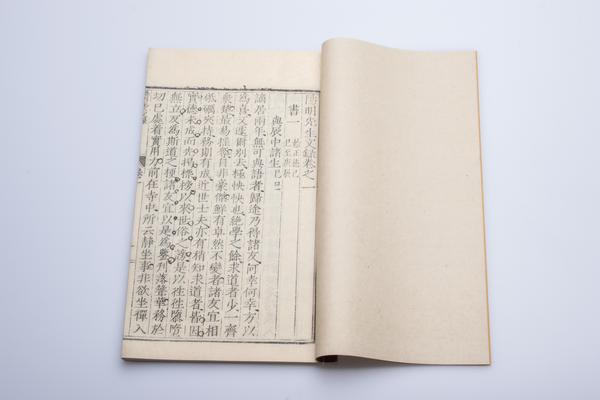 陽明先生文錄卷之一
書一
始正德己
巳至庚辰
與辰中諸生己巳
謫居兩年無可與語者歸途乃得諸友何幸何幸方以
為喜又遽爾別去極怏怏也絕學之餘求道者少一齊
衆楚最易搖奪自非豪傑鮮有卓然不變者諸友宜相
砥礪夾持務期有成近世士夫亦有稍知求道者皆因
實德未成而先揭標榜以來世俗之謗是以徃徃隳墮
無立反為斯道之梗諸友宜以是為鑒刊落聲華務於
切己處着實用力前在寺中所云静坐事非欲坐禪入